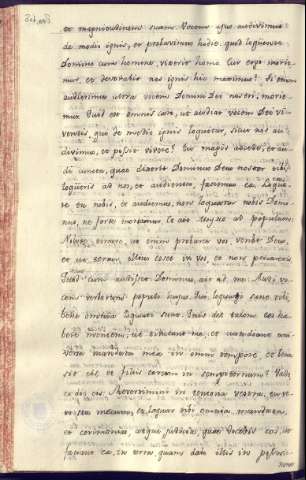 et magnitudinem suam. Vocem ejus audivimus
de medio ignis, et probavimus hodie, quod loquente
Domino cum homine, vixerit homo. Cur ergo morie-
mur, et devorabit nos ignis hic maximus? Si enim
audierimus ultra vocem Domini Dei nostri, morie-
mur. Quid est omnis caro, ut audiat vocem Dei vi-
ventis, qui de medio ignis loquitur, sicut nos au-
divimus, et possit vivere? Tu magis accede, et au-
di cuncta, quae dixerit Dominus Deus noster tibi,
loquerisque ad nos, et audientes, faciemus ea. Loque-
re tu nobis, et audiemus, non loquatur nobis Domi-
nus, ne forte moriamur. Et ait Moyses ad populum:
Nolite timere, ut enim probaret vos, venit Deus,
et ut terror illius esset in vobis, et non peccaretis.
Quod cum audisset Dominus, ait ad me: Audivi
vocem verborum populi hujus, quae locuti sunt tibi,
bene omnia locuti sunt. Quis det talem eos ha-
bere mentem, ut timeant me, et custodiant uni-
versa mandata mea in omni tempore, ut bene
sit eis et filiis eorum in sempiternum? Vade
et dic eis: Revertimini in tentoria vestra, tu ve-
ro sta mecum, et loquar tibi omnia mandata,
et ceremonias, atque judicia, quae docebis eos, ut
faciant ea in terra, quam dabo illis in posses-
sionem